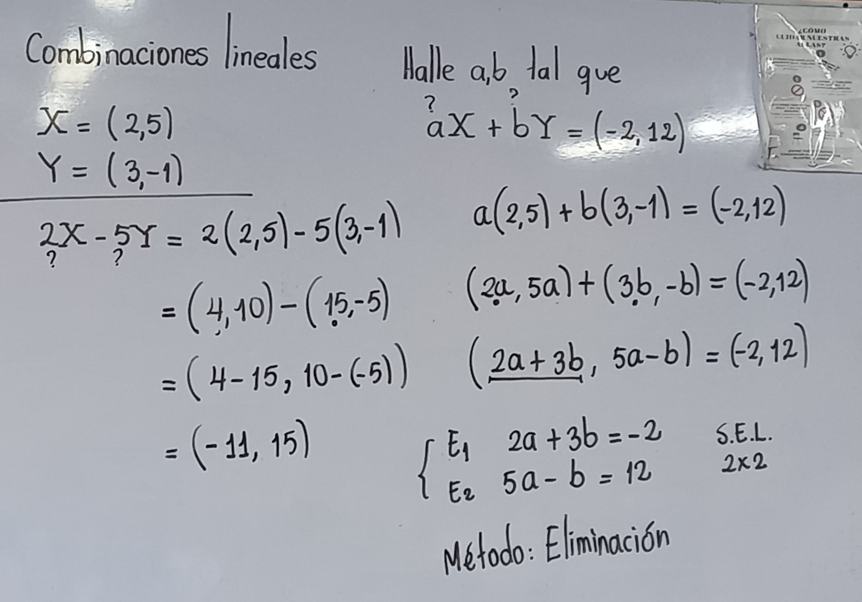 Combinaciones lineales
X = (2,5)
Y = (3,-1)
2X - 5Y = 2(2,5) - 5(3,-1)
? ?
= (4,10) - (15,-5)
= (4-15, 10-(-5))
= (-11, 15)
Halle a,b tal que
? ?
aX + bY = (-2,12)
a(2,5) + b(3,-1) = (-2,12)
(2a, 5a) + (3b, -b) = (-2,12)
(2a+3b, 5a-b) = (-2,12)
{ E1 2a + 3b = -2 S.E.L.
E2 5a - b = 12 2x2
Método: Eliminación
¿CÓMO